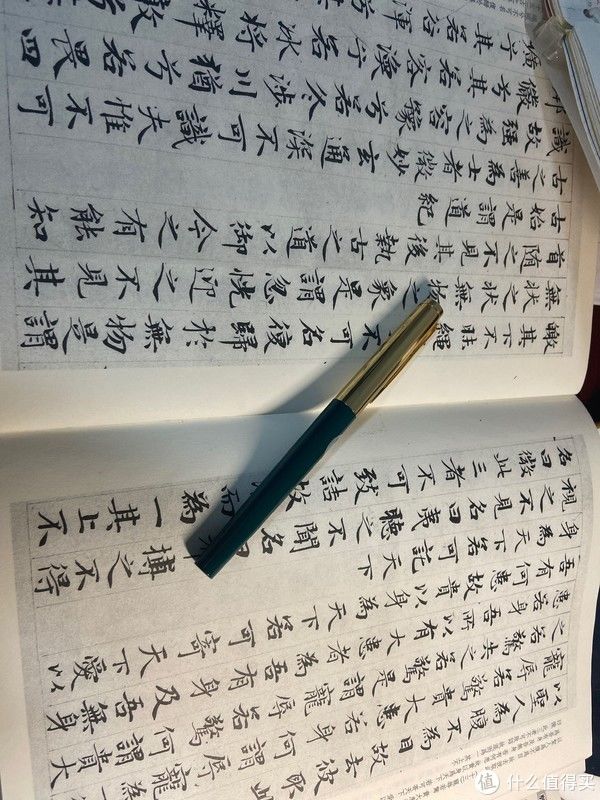 以聖人為腹不為目故去彼取此
寵辱若驚貴大患若身何謂寵辱若驚
之若驚失之若驚是謂寵辱若驚何謂貴大
患若身吾所以有大患者為吾有身及吾無身
吾有何患故貴以身為天下若可寄天下愛以
身為天下若可託天下
視之不見名曰夷聽之不聞名曰搏之不得
名曰微此三者不可致詰故而為一其上不
皦其下不昧繩不可名復歸於無物是謂
無狀之狀無物之象是謂忽恍迎之不見其
首隨之不見其後執古之道以御今之有能知
古始是謂道紀
古之善為士者微妙玄通深不可識夫惟不可
識故強為之容豫兮若冬涉川猶兮若畏四
鄰儼兮其若容渙兮若冰將釋敦
值 什么值得买